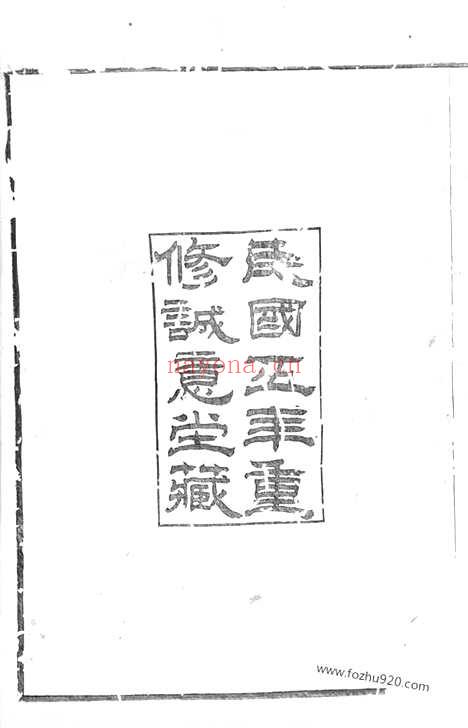 民國五年重
修誠意堂藏
nayona.cn
www.fozhu920.com